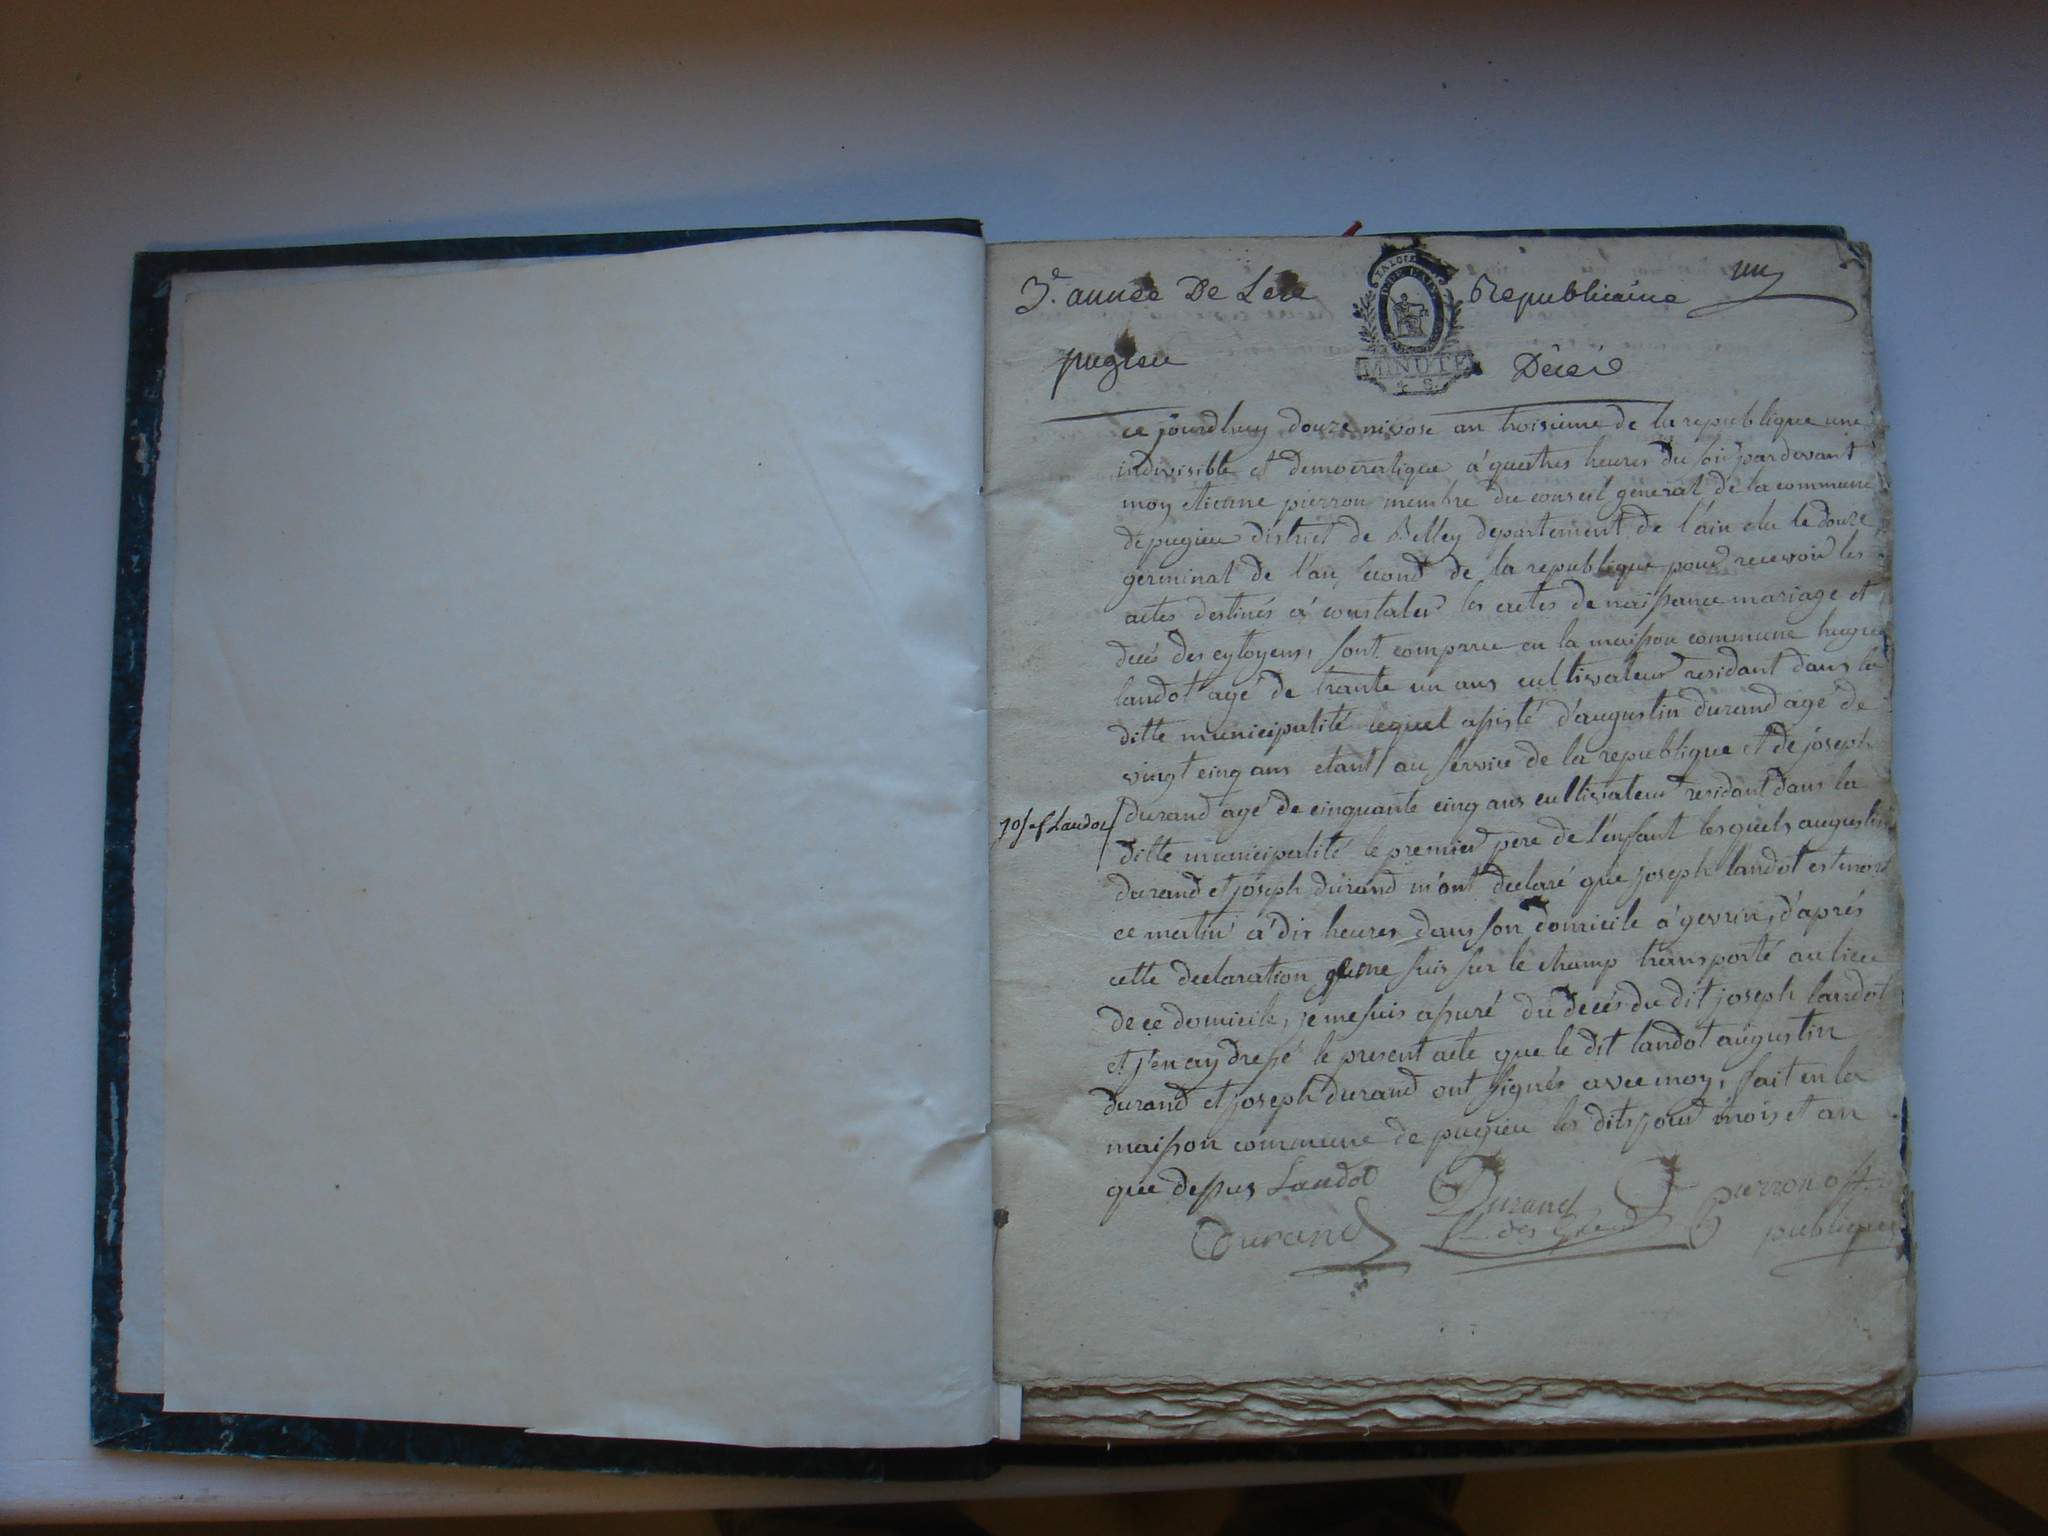 3e. année De Lere Republicaine un
LA LOI
MINUTE
pugieu Décés
ce jourdhuy douze nivose an troisieme de la republique une
indivisible et democratique a quatres heures du soir pardevant
moy etienne pierron membre du conseil general de la commune
de pugieu district de Belley departement de l'ain elu le douze
germinal de l'an second de la republique pour recevoir les
actes destinés a constater les actes de naissance mariage et
decés des cytoyens, sont comparu en la maison commune hugue
landot agé de trante un ans cultivateur residant dans la
ditte municipalité lequel assisté d'augustin durand agé de
vingt cinq ans etant au service de la republique et de joseph
durand agé de cinquante cinq ans cultivateur residant dans la
josef Landot
ditte municipalité le premier pere de l'enfant lesquels augustin
durand et joseph durand m'ont declaré que joseph landot est mort
ce matin a dix heures dans son domicile a gevrin, d'aprés
cette declaration je me suis sur le champ transporté au lieu
de ce domicile, je me suis assuré du decés du dit joseph landot
et j'en ay dressé le present acte que le dit landot augustin
durand et joseph durand ont signés avec moy, fait en la
maison commune de pugieu les dits jour mois et an
que dessus Landot
Durand Durand pierron off
publique